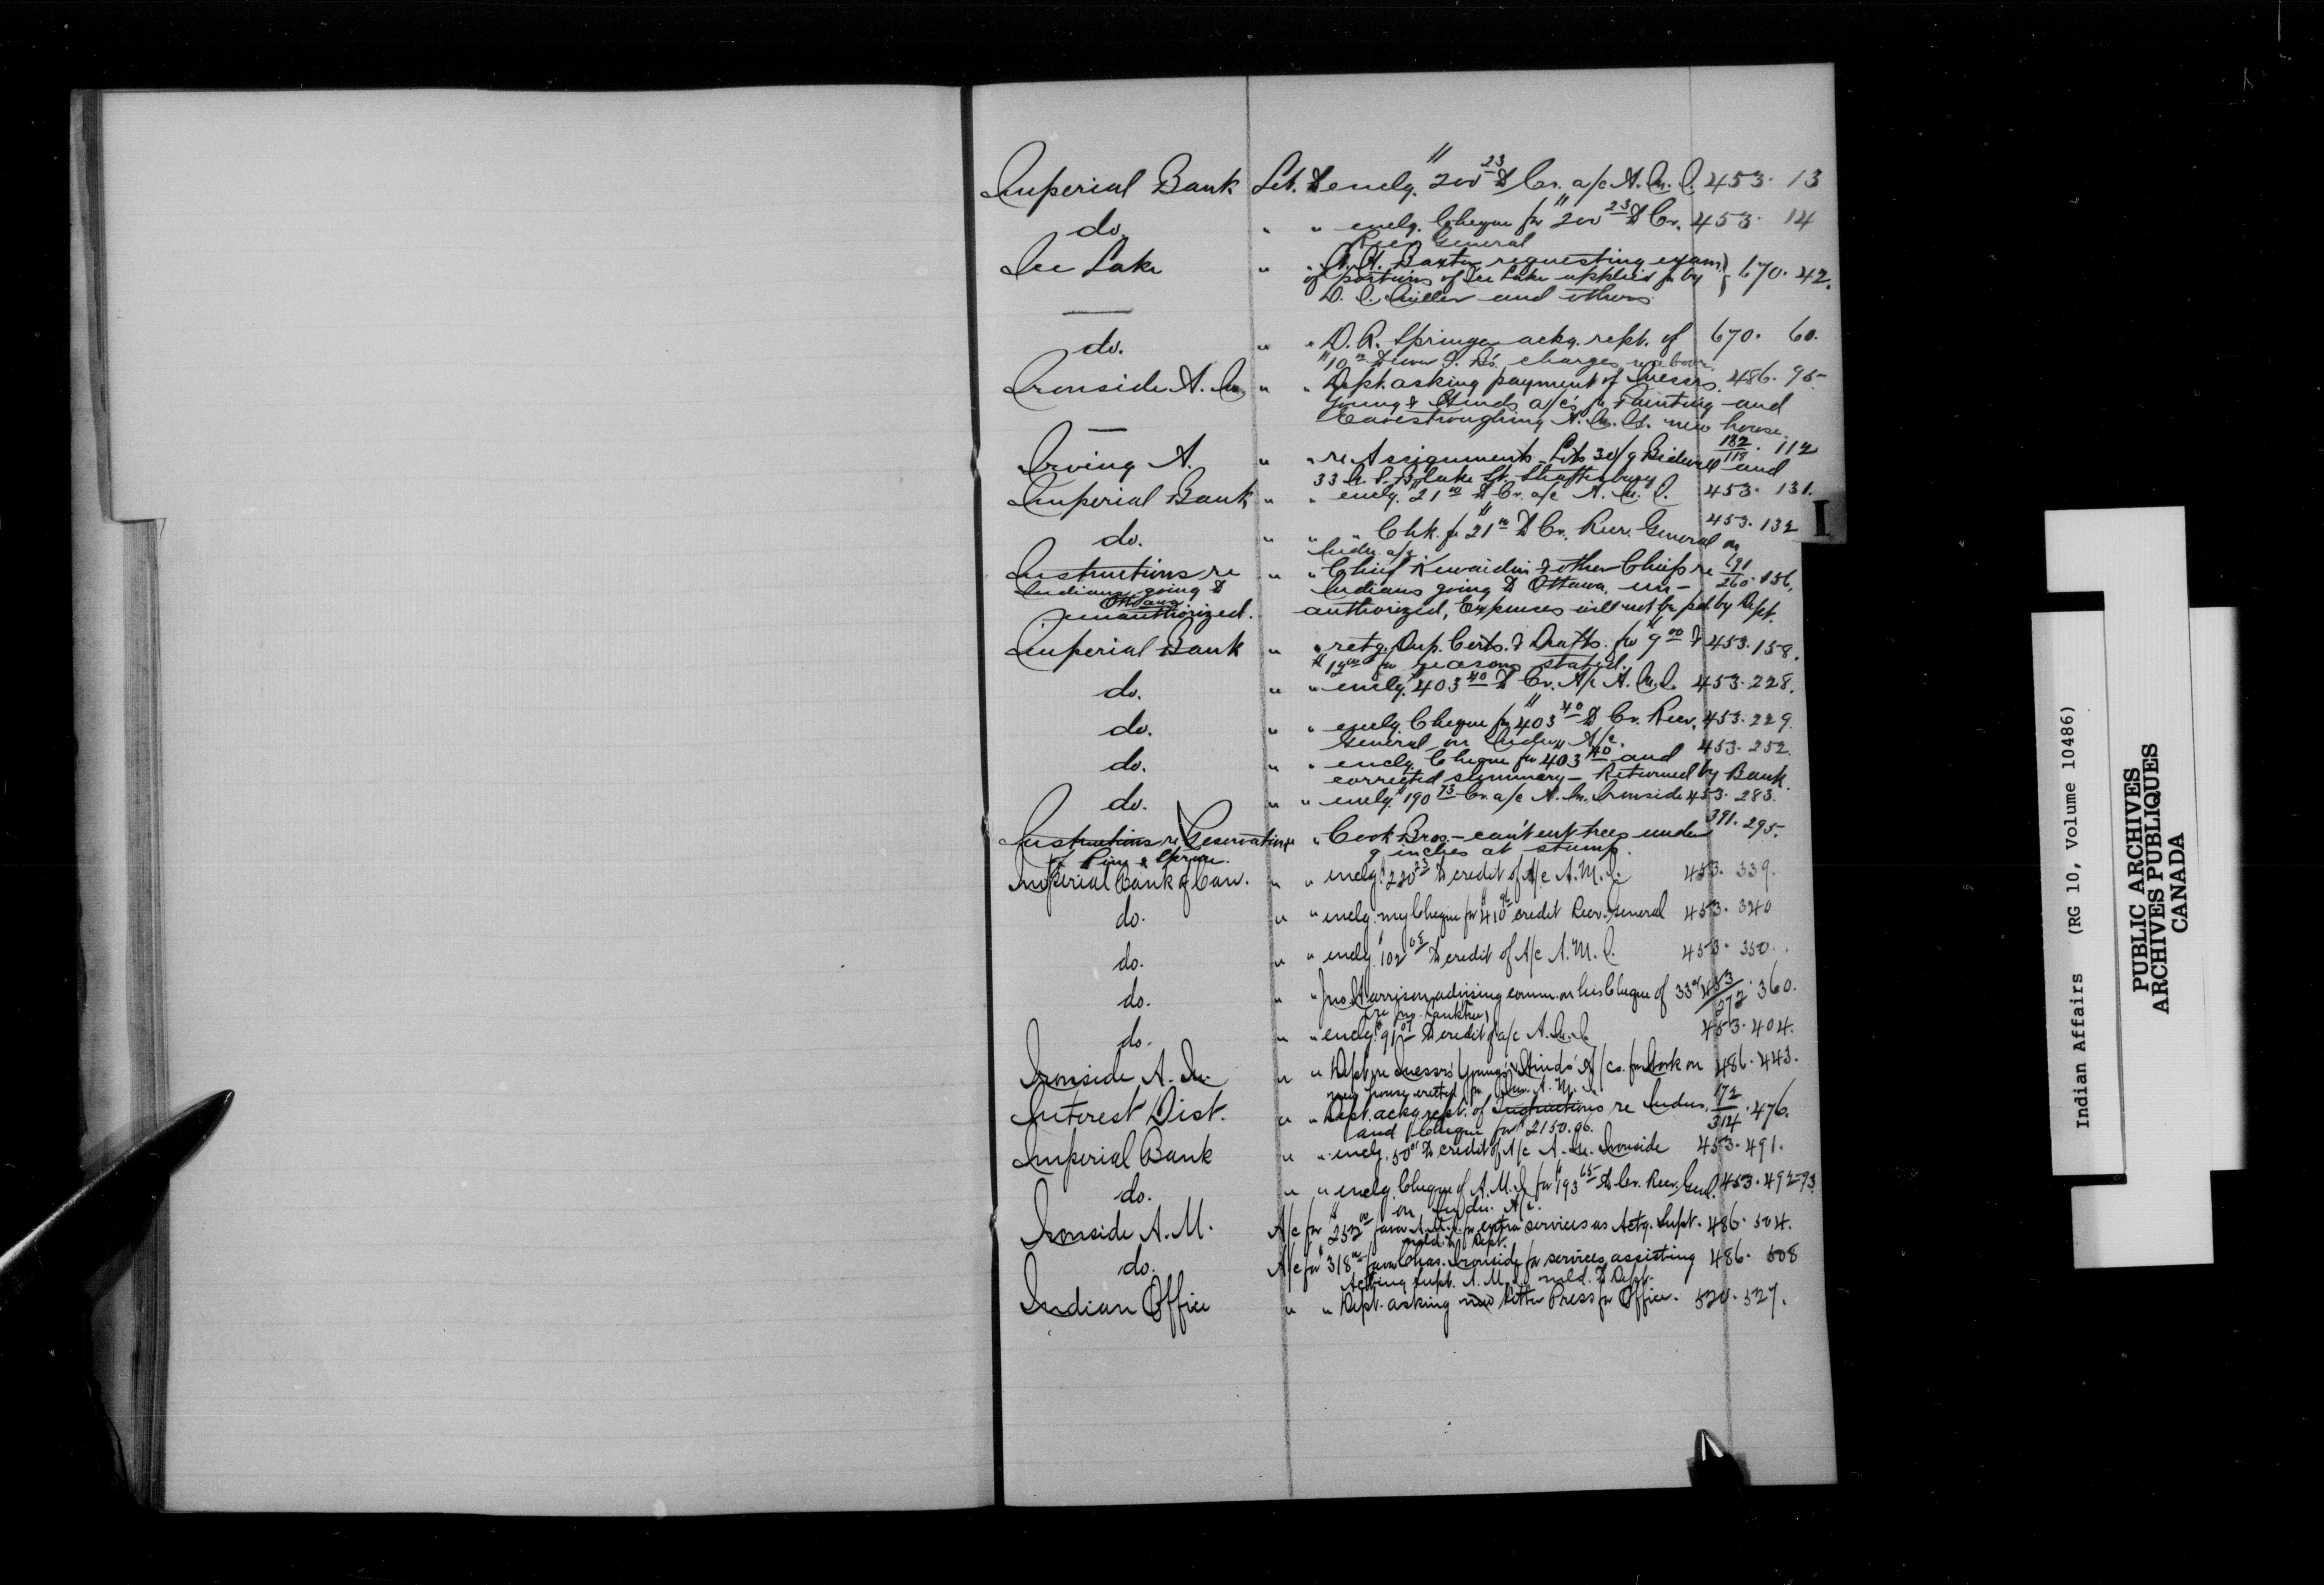 Imperial Bank Let. to enclg. $200 23 to Cr. a/c A. M. I. 453. 13
do. " " enclg. Cheque for $200 23 to Cr. 453. 14
Recr General
Ice Lake " " requesting exam. 670. 42.
of portions of Ice Lake applied for by
and others
do. " " D. R. Springer ackg. rept. of 670. 60.
$10 charges
Ironside A. M. " " Dept. asking payment of Messrs. 486. 95
Young & Hinds a/c's for Painting and
Eavestroughing A. M. I's. new house.
Irving A. " " re Assignments Lots 30 Bidwell and 182/119. 112
33 Lake St. Shaftesbury
Imperial Bank " " enclg. $21 00 to Cr. a/c A. M. I. 453. 131.
do. " " " Chk. for $21 00 to Cr. Recr. General on 453. 132
Indn. a/c.
Instructions re " " Chief & other Chiefs re 691/260. 156.
Indians going to Indians going to Ottawa, un-
Ottawa
unauthorized. authorized, Expenses will not be pd. by Dept.
Imperial Bank " " retg. Dup. Certs. & Drafts. for $9 00 & 453. 158.
$12 00 for reasons stated.
do. " " enclg. $403 40 to Cr. A/c A. M. I. 453. 228.
do. " " enclg. Cheque for $403 40 to Cr. Recr. 453. 229.
General on Indn A/c.
do. " " enclg. Cheque for $403 40 and 453. 252.
corrected summary - Returned by Bank.
do. " " enclg. $190 73 Cr. a/c A. M. Ironside 453. 283.
Instructions re Reservation " Cook Bros. - can't cut trees under 391. 295.
of Pine & Spruce. 9 inches at stump.
Imperial Bank of Can. " " enclg. $220 23 to credit of A/c A. M. I. 453. 339.
do. " " enclg. my Cheque for $410 credit Recr. General 453. 340
do. " " enclg. $102 to credit of A/c A. M. I. 453. 350.
do. " " Jno. Harrison advising comm. on his Cheque of 33 453/272. 360.
do. " " enclg. $91 to credit of a/c A. M. I. 453. 404.
Ironside A. M. " " Dept. re Messrs Youngs & Hinds' A/cs. for Work on 486. 443.
new house erected for A. M. I.
Interest Dist. " " Dept. ackg rept. of Instructions re Indns. 172/314. 476.
and Cheque for $2150.96.
Imperial Bank " " enclg. 50 to credit of A/c A. M. Ironside 453. 491.
do. " " enclg. Cheque of A. M. I for $193 65 to Cr. Recr. Genl. 453. 492-93.
on Indn. A/c.
Ironside A. M. A/c for $252 00 favor A. M. I. for extra services as Actg. Supt. 486. 504.
Dept.
do. A/c for $318 favor Chas. Ironside for services assisting 486. 508
Acting Supt. A. M. I. to Dept.
Indian Office " " Dept. asking new Letter Press for Office. 520. 527.
I
Indian Affairs (RG 10, Volume 10486)
PUBLIC ARCHIVES
ARCHIVES PUBLIQUES
CANADA